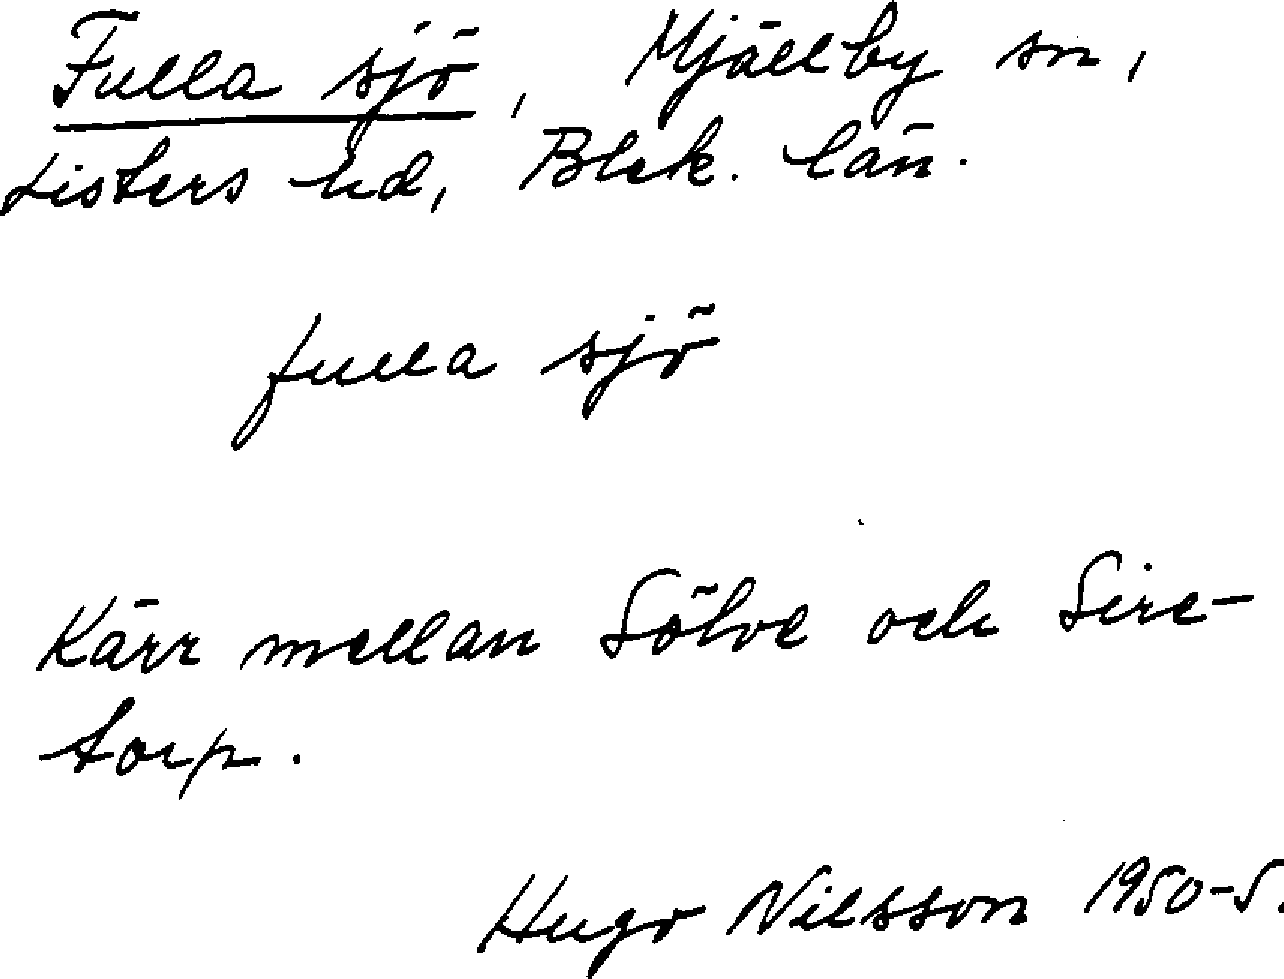 Fulla sjö, Mjällby sn,
Listers hd, Blek. län.
fulla sjö
Kärr mellan Sölve och Sire-
torp.
Hugo Nilsson 1950-5.